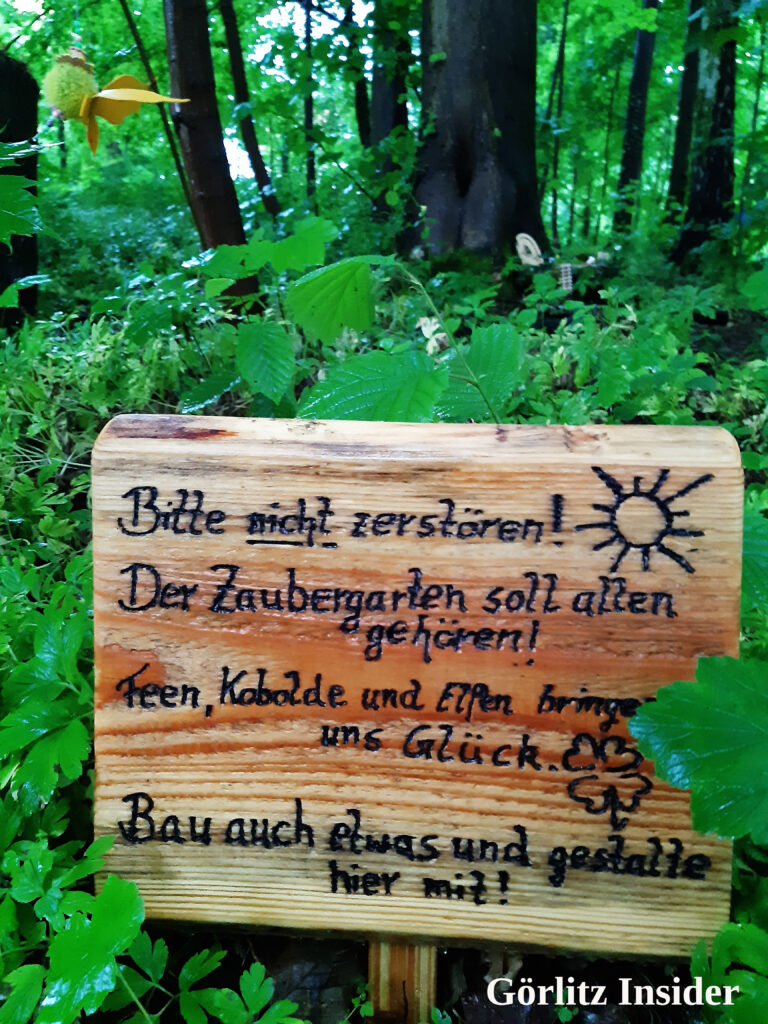 Bitte nicht zerstören!
Der Zaubergarten soll allen
gehören!
Feen, Kobolde und Elfen bringe
uns Glück.
Bau auch etwas und gestalte
hier mit!
Görlitz Insider